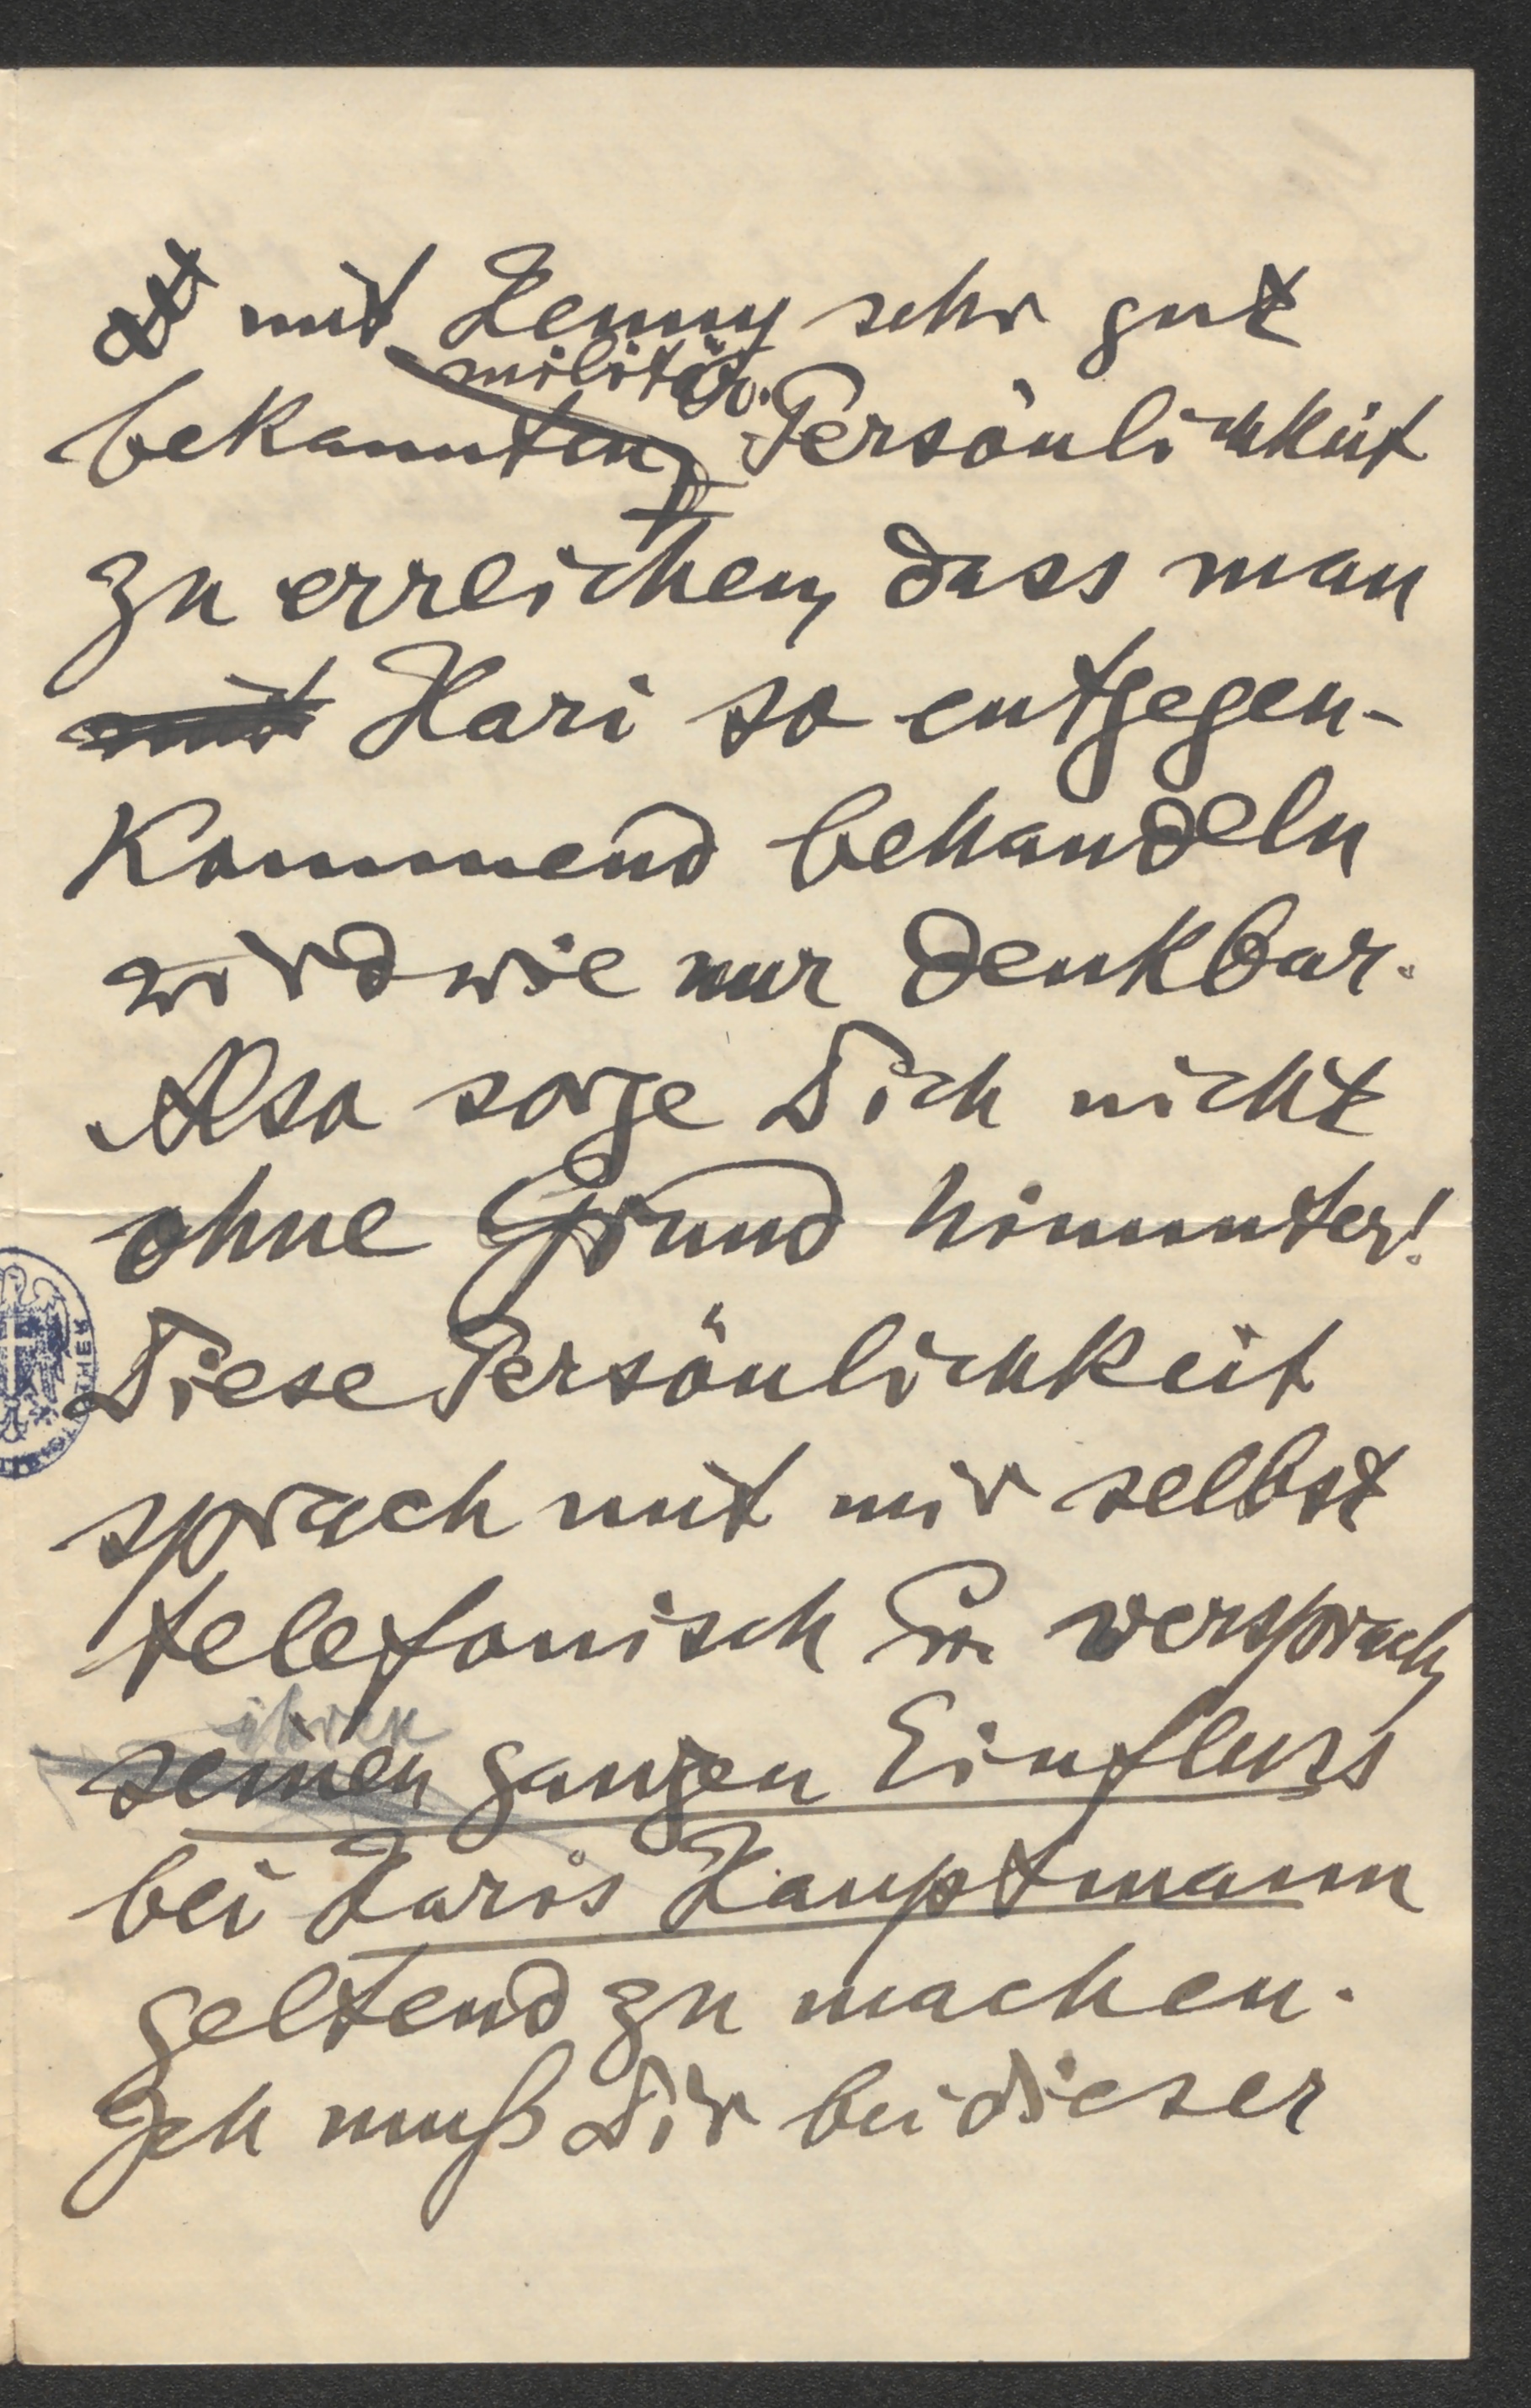 mit Henny sehr gut
militär.
bekannten Persönlichkeit
zu erreichen, dass man
mit Hari so entgegen-
kommend behandeln
wird wie nur denkbar.
Also sorge Dich nicht
ohne Grund hinunter!
Diese Persönlichkeit
sprach mit mir selbst
telefonisch versprach,
ihren
seinen ganzen Einfluss
bei Haris Hauptmann
geltend zu machen.
Ich muß Dir bei dieser